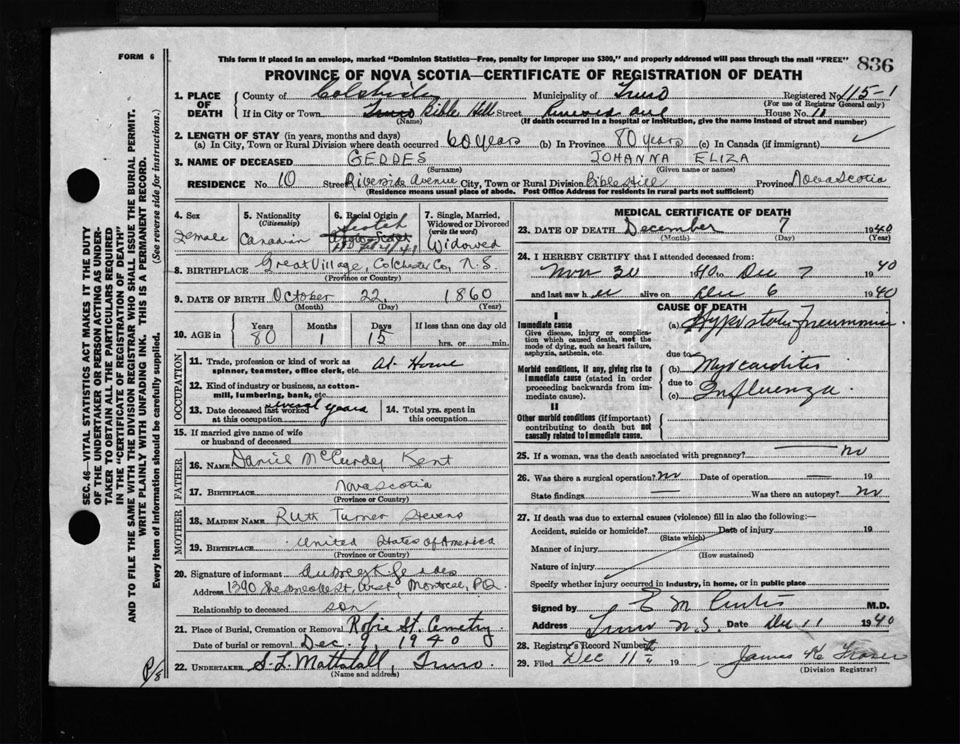 FORM 6
This form if placed in an envelope, marked "Dominion Statistics—Free, penalty for improper use $300," and properly addressed will pass through the mail "FREE"
836
PROVINCE OF NOVA SCOTIA—CERTIFICATE OF REGISTRATION OF DEATH
1. PLACE OF DEATH
County of Colchester Municipality of Truro Registered No. 115-1
(For use of Registrar General only)
If in City or Town Truro Bible Hill Street House No. 10
(Name) (If death occurred in a hospital or institution, give the name instead of street and number)
2. LENGTH OF STAY (in years, months and days)
(a) In City, Town or Rural Division where death occurred 60 years (b) In Province 80 years (c) In Canada (if immigrant)
3. NAME OF DECEASED GEDDES JOHANNA ELIZA
(Surname) (Given name or names)
RESIDENCE No. 10 Street Riverside Avenue City, Town or Rural Division Bible Hill Province Nova Scotia
(Residence means usual place of abode. Post Office Address for residents in rural parts not sufficient)
4. Sex Female
5. Nationality (Citizenship) Canadian
6. Racial Origin Scotch
7. Single, Married, Widowed or Divorced (write the word) Widowed
8. BIRTHPLACE Great Village, Colchester Co, N.S.
(Province or Country)
9. DATE OF BIRTH October 22 1860
(Month) (Day) (Year)
10. AGE in Years 80 Months 1 Days 15 If less than one day old hrs. or min.
OCCUPATION
11. Trade, profession or kind of work as spinner, teamster, office clerk, etc. at Home
12. Kind of industry or business, as cotton-mill, lumbering, bank, etc.
13. Date deceased last worked at this occupation several years
14. Total yrs. spent in this occupation
15. If married give name of wife or husband of deceased
FATHER
16. NAME Daniel McCurdy Kent
17. BIRTHPLACE Nova Scotia
(Province or Country)
MOTHER
18. MAIDEN NAME Ruth Turner Stevens
19. BIRTHPLACE United States of America
(Province or Country)
20. Signature of informant Aubrey K Geddes
Address 1390 Sherbrooke St, West, Montreal, P.Q.
Relationship to deceased son
21. Place of Burial, Cremation or Removal Robie St. Cemetry
Date of burial or removal Dec. 9, 1940
22. UNDERTAKER S. L. Mattatall, Truro.
(Name and address)
MEDICAL CERTIFICATE OF DEATH
23. DATE OF DEATH December 7 1940
(Month) (Day) (Year)
24. I HEREBY CERTIFY that I attended deceased from:
Nov 30 1940 to Dec 7 1940
and last saw her alive on Dec 6 1940
CAUSE OF DEATH
I
Immediate cause
Give disease, injury or complication which caused death, not the mode of dying, such as heart failure, asphyxia, asthenia, etc.
(a) Hypostatic Pneumonia
due to
Morbid conditions, if any, giving rise to immediate cause (stated in order proceeding backwards from immediate cause).
(b) Myocarditis
due to
(c) Influenza
II
Other morbid conditions (if important) contributing to death but not causally related to immediate cause.
25. If a woman, was the death associated with pregnancy? no
26. Was there a surgical operation? no Date of operation 19
State findings Was there an autopsy? no
27. If death was due to external causes (violence) fill in also the following:—
Accident, suicide or homicide? Date of injury 19
(State which)
Manner of injury
(How sustained)
Nature of injury
Specify whether injury occurred in industry, in home, or in public place
Signed by E M Curtis M.D.
Address Truro N.S. Date Dec 11 1940
28. Registrar's Record Number
29. Filed Dec 11 19 James K Fraser
(Division Registrar)
SEC. 46—VITAL STATISTICS ACT MAKES IT THE DUTY
OF THE UNDERTAKER OR PERSON ACTING AS UNDER-
TAKER TO OBTAIN ALL THE PARTICULARS REQUIRED
IN THE "CERTIFICATE OF REGISTRATION OF DEATH"
AND TO FILE THE SAME WITH THE DIVISION REGISTRAR WHO SHALL ISSUE THE BURIAL PERMIT.
WRITE PLAINLY WITH UNFADING INK. THIS IS A PERMANENT RECORD.
Every item of information should be carefully supplied. (See reverse side for instructions.)